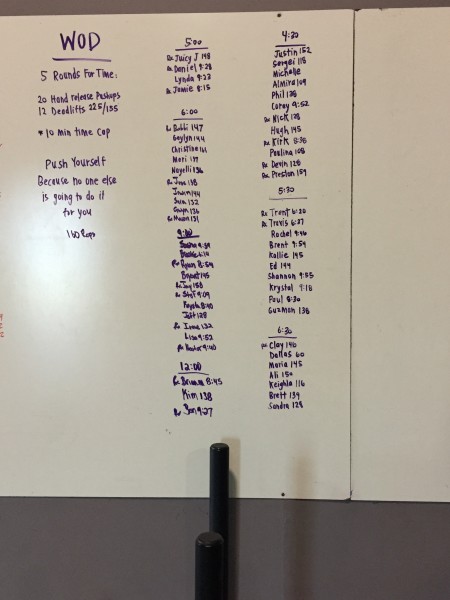 WOD
5 Rounds For Time:
20 Hand release Pushups
12 Deadlifts 225/155
*10 Min time Cap
Push Yourself
Because no one else
is going to do it
for you
160 Reps
5:00
Rx Juicy J 148
Rx Daniel 9:28
Lynda 9:23
Rx Jamie 8:15
6:00
Rx Bobbi 147
Gaylyn 144
Christine
Mari
Nayelli 136
Rx Jose 138
Irwin 144
Sue 132
Gwyn 136
Rx Mason 131
9:00
Rx Ryan 8:54
Bryant 145
Rx Jay 158
Rx Stef 9:09
Kayla 8:40
Jeff 128
Rx Irene 132
Lisa 9:52
Rx Hector 9:40
12:00
Rx Brianna 8:45
Kim 138
Rx Jon 9:27
4:30
Justin 152
Sergei 118
Michelle
Almira 109
Phil 128
Corey 9:52
Rx Nick 128
Hugh 145
Rx Kirk 8:38
Paulina 108
Rx Devin 128
Rx Preston 159
5:30
Rx Trent 6:20
Rx Travis 6:27
Rachel 9:46
Brent 9:59
Kallie 145
Ed 144
Shannon 9:55
Krystal 9:18
Paul 8:30
Guzman 138
6:30
Rx Clay 146
Dallas 60
Maria 145
Ali 150
Keighla 116
Brett 139
Sandra 128